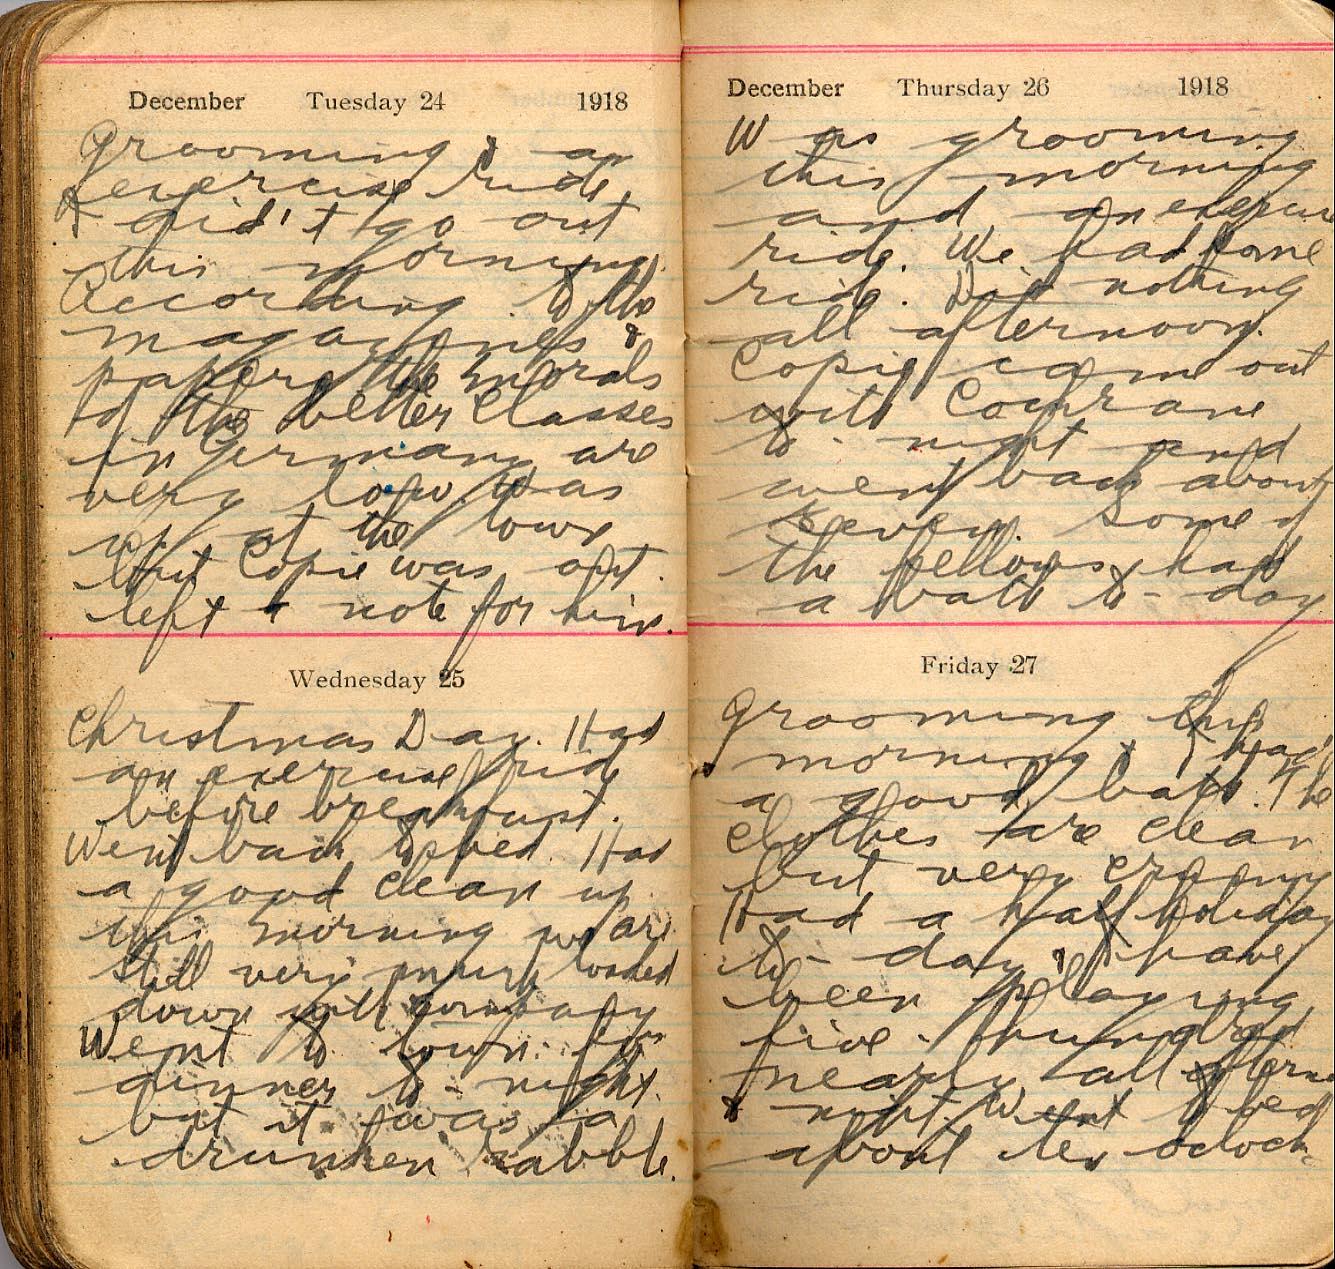 December Tuesday 24 1918
Grooming & an
exercise ride.
I did't go out
this morning.
According to the
magazines &
papers the morals
of the better classes
in Germany are
very low. Was
up at the town
but Copie was out.
left a note for him.
Wednesday 25
Christmas Day. Had
an exercise ride
before breakfast.
Went back to bed. Had
a good clean up
this morning we are
still very much loaded
down with company
Went to town for
dinner to-night.
but it was a
drunken rabble.
December Thursday 26 1918
Was grooming
this morning
and an exercise
ride. We had some
ride. Did nothing
all afternoon.
Copie came out
with Cochrane
to-night and
went back about
seven. Some of
the fellows had
a bath to-day
Friday 27
Grooming this
morning & I had
a good bath. The
clothes are clean
but very crampy
Had a half holiday
to-day & have
been playing
five-hundred
nearly all
& night. Went to bed
about ten oclock